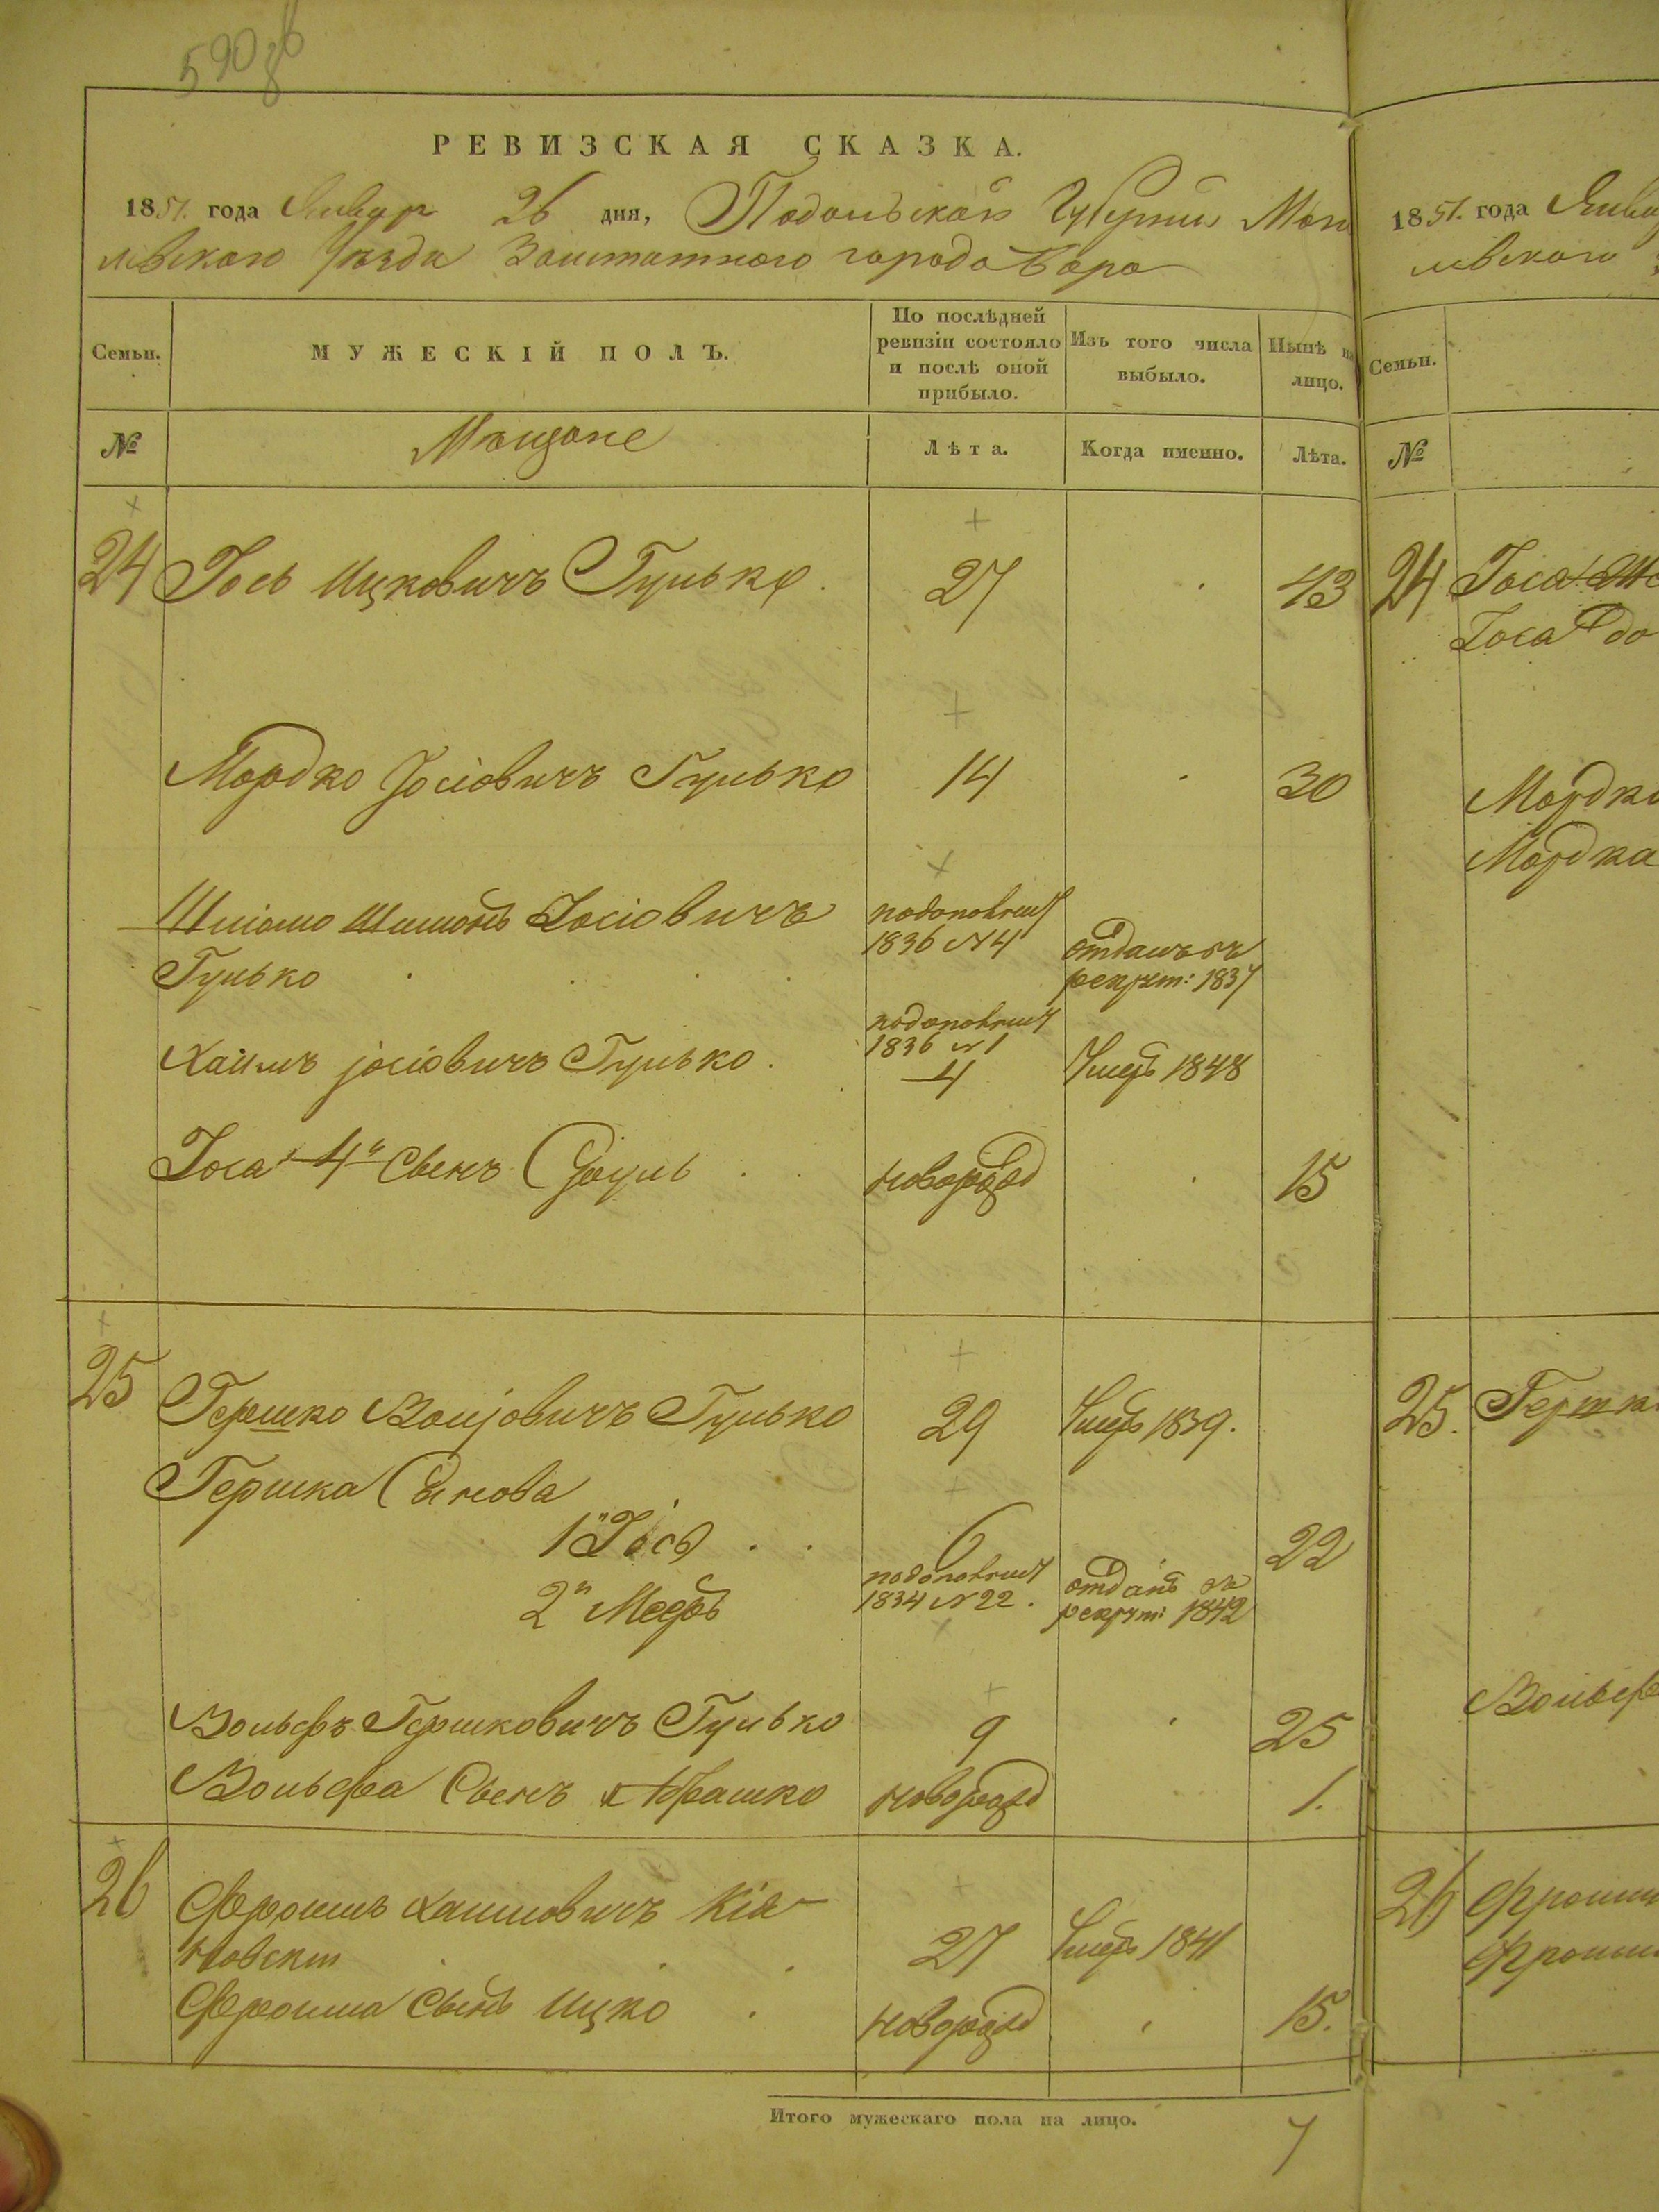 590 об
РЕВИЗСКАЯ СКАЗКА.
1851. года Январ 26 дня, Подольской Губернии Моги
левского Уезда Заштатного города Бара
Семьи.
МУЖЕСКІЙ ПОЛЪ.
По послѣдней
ревизіи состояло
и послѣ оной
прибыло.
Изъ того числа
выбыло.
Нынѣ на
лицо.
№
Мещане
Лѣта.
Когда именно.
Лѣта.
24 Іось Ицковичъ Гулько. 27 43
Мордко Іосіовичъ Гулько 14 30
Шліомо Шимонъ Іосіовичъ
Гулько
1836 №4
отданъ въ
рекрут: 1837
Хаимъ іосіовичъ Гулько.
1836 №1
4
Умеръ 1848
Іоса 4й Сынъ новорожд 15
25 Гершко Волјовичъ Гулько 29 Умеръ 1839.
Гершка Сынова
1й Іось 6 22
2й Мееръ
1834 №22.
отданъ въ
рекрут: 1842
Вольфъ Гершковичъ Гулько 9 25
Вольфа Сынъ Абрашко новорожд 1.
26 Фроимъ Хаимовичъ Кія-
новскій 27 Умеръ 1841
Фроима Сынъ Ицко новорожд 15.
Итого мужескаго пола на лицо. 7
1851. года Янва
левского
Семьи.
№
24 Іоса
Іоса
Мордки
Мордка
25. Гершк
Вольфа
26 Фроим
Фроим